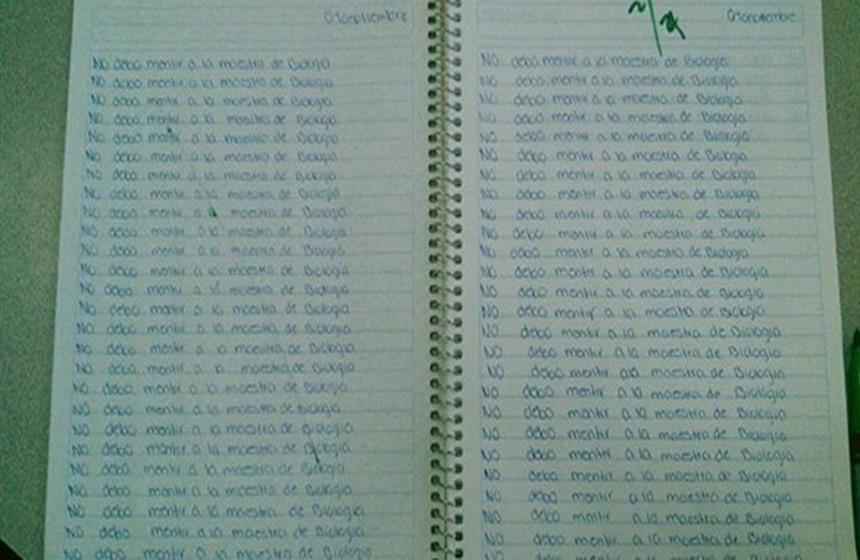 NO debo mentir a la maestra de Biología
NO debo mentir a la maestra de Biología
NO debo mentir a la maestra de Biología
NO debo mentir a la maestra de Biología
NO debo mentir a la maestra de Biología
NO debo mentir a la maestra de Biología
NO debo mentir a la maestra de Biología
NO debo mentir a la maestra de Biología
NO debo mentir a la maestra de Biología
NO debo mentir a la maestra de Biología
NO debo mentir a la maestra de Biología
NO debo mentir a la maestra de Biología
NO debo mentir a la maestra de Biología
NO debo mentir a la maestra de Biología
NO debo mentir a la maestra de Biología
NO debo mentir a la maestra de Biología
NO debo mentir a la maestra de Biología
NO debo mentir a la maestra de Biología
NO debo mentir a la maestra de Biología
NO debo mentir a la maestra de Biología
NO debo mentir a la maestra de Biología
NO debo mentir a la maestra de Biología
NO debo mentir a la maestra de Biología
NO debo mentir a la maestra de Biología
NO debo mentir a la maestra de Biología
NO debo mentir a la maestra de Biología
NO debo mentir a la maestra de Biología
NO debo mentir a la maestra de Biología
NO debo mentir a la maestra de Biología
NO debo mentir a la maestra de Biología
NO debo mentir a la maestra de Biología
NO debo mentir a la maestra de Biología
NO debo mentir a la maestra de Biología
NO debo mentir a la maestra de Biología
NO debo mentir a la maestra de Biología
NO debo mentir a la maestra de Biología
NO debo mentir a la maestra de Biología
NO debo mentir a la maestra de Biología
NO debo mentir a la maestra de Biología
NO debo mentir a la maestra de Biología
NO debo mentir a la maestra de Biología
NO debo mentir a la maestra de Biología
NO debo mentir a la maestra de Biología
NO debo mentir a la maestra de Biología
NO debo mentir a la maestra de Biología
NO debo mentir a la maestra de Biología
NO debo mentir a la maestra de Biología
NO debo mentir a la maestra de Biología
NO debo mentir a la maestra de Biología
NO debo mentir a la maestra de Biología
NO debo mentir a la maestra de Biología